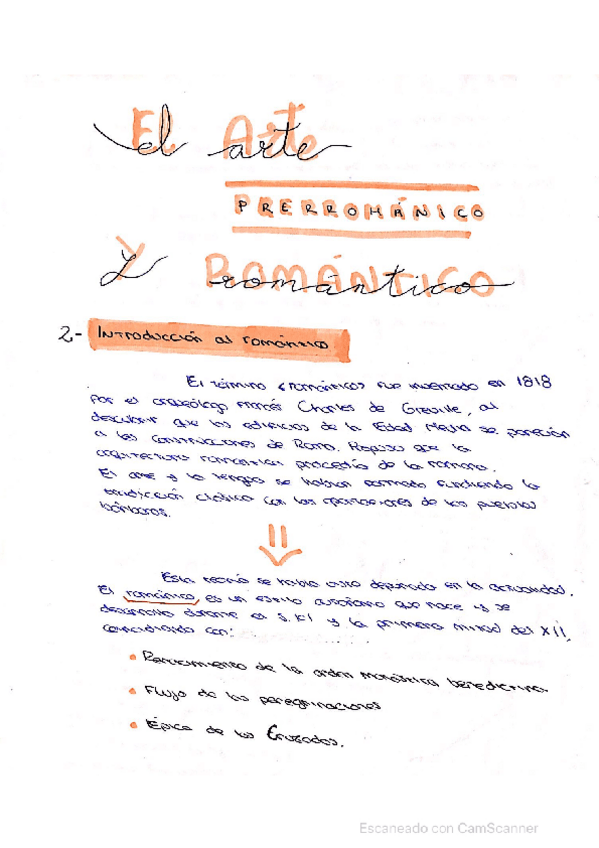 El arte
PRERROMÁNICO
Y romántico
2- Introducción al románico
El término «románico» fue inventado en 1818
por el arqueólogo francés Charles de Greville, al
descubrir que los edificios de la Edad Media se parecían
a las construcciones de Roma. que la
arquitectura procedía de la romana.
El arte y la lengua se habían formado fundiendo la
tradición clásica con las aportaciones de los pueblos
bárbaros.
Esta teoría se había visto depurada en la actualidad.
El románico, es un estilo que nace y se
desarrolla durante el s.XI y la primera mitad del XII,
coincidiendo con:
• Renacimiento de la orden monástica benedictina.
• Flujo de las peregrinaciones
• Épica de las Cruzadas.
Escaneado con CamScanner